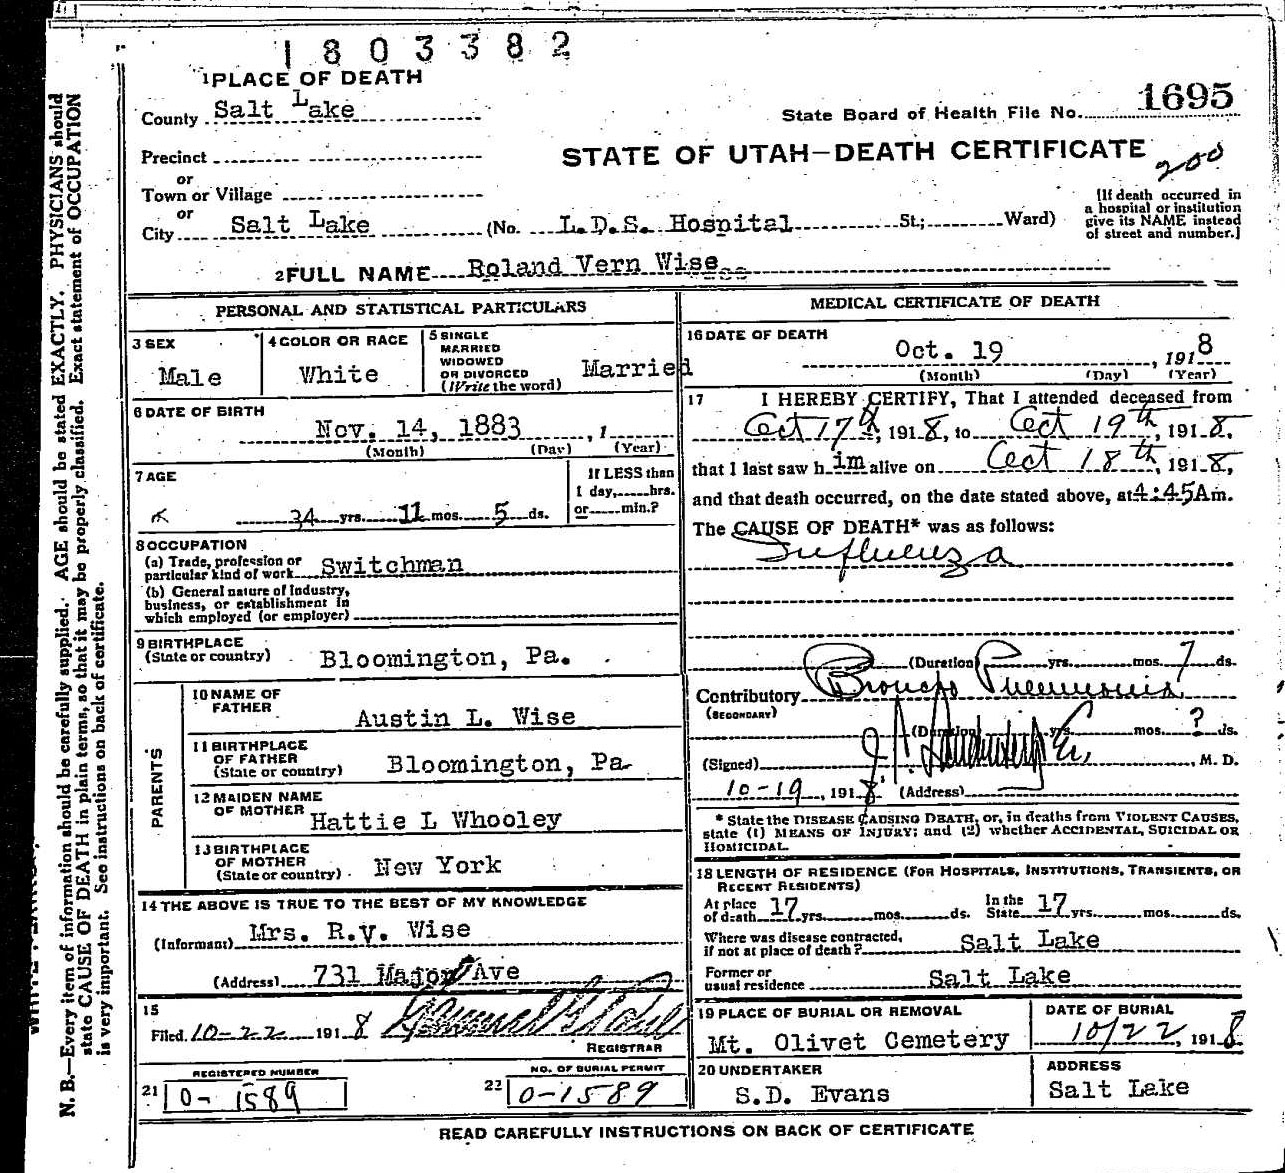 1803382
1 PLACE OF DEATH
County Salt Lake
State Board of Health File No. 1695
Precinct
STATE OF UTAH—DEATH CERTIFICATE
200
or
Town or Village
or
City Salt Lake (No. L.D.S. Hospital St.; Ward)
[If death occurred in
a hospital or institution
give its NAME instead
of street and number.]
2 FULL NAME Roland Vern Wise
PERSONAL AND STATISTICAL PARTICULARS
3 SEX
Male
4 COLOR OR RACE
White
5 SINGLE
MARRIED
WIDOWED
OR DIVORCED
(Write the word)
Married
6 DATE OF BIRTH
Nov. 14, 1883, 1
(Month) (Day) (Year)
7 AGE
34 yrs. 11 mos. 5 ds.
If LESS than
1 day, hrs.
or min.?
8 OCCUPATION
(a) Trade, profession or
particular kind of work Switchman
(b) General nature of Industry,
business, or establishment in
which employed (or employer)
9 BIRTHPLACE
(State or country) Bloomington, Pa.
PARENTS
10 NAME OF
FATHER
Austin L. Wise
11 BIRTHPLACE
OF FATHER
(State or country) Bloomington, Pa
12 MAIDEN NAME
OF MOTHER
Hattie L Whooley
13 BIRTHPLACE
OF MOTHER
(State or country) New York
14 THE ABOVE IS TRUE TO THE BEST OF MY KNOWLEDGE
(Informant) Mrs. R.V. Wise
(Address) 731 Major Ave
15
Filed 10-22 1918
REGISTRAR
REGISTERED NUMBER
21 0-1589
NO. OF BURIAL PERMIT
22 0-1589
MEDICAL CERTIFICATE OF DEATH
16 DATE OF DEATH
Oct. 19, 1918
(Month) (Day) (Year)
17 I HEREBY CERTIFY, That I attended deceased from
Oct 17th, 1918, to Oct 19th, 1918,
that I last saw him alive on Oct 18th, 1918,
and that death occurred, on the date stated above, at 4:45 Am.
The CAUSE OF DEATH* was as follows:
Influenza
(Duration) yrs. mos. 7 ds.
Contributory Broncho Pneumonia
(SECONDARY)
(Duration) yrs. mos. ? ds.
(Signed) M. D.
10-19, 1918 (Address)
* State the DISEASE CAUSING DEATH, or, in deaths from VIOLENT CAUSES,
state (1) MEANS OF INJURY; and (2) whether ACCIDENTAL, SUICIDAL OR
HOMICIDAL.
18 LENGTH OF RESIDENCE (FOR HOSPITALS, INSTITUTIONS, TRANSIENTS, OR
RECENT RESIDENTS)
At place
of death 17 yrs. mos. ds.
In the
State 17 yrs. mos. ds.
Where was disease contracted,
if not at place of death? Salt Lake
Former or
usual residence Salt Lake
19 PLACE OF BURIAL OR REMOVAL
Mt. Olivet Cemetery
DATE OF BURIAL
10/22, 1918
20 UNDERTAKER
S.D. Evans
ADDRESS
Salt Lake
READ CAREFULLY INSTRUCTIONS ON BACK OF CERTIFICATE
N. B.—Every item of information should be carefully supplied. AGE should be stated EXACTLY. PHYSICIANS should
state CAUSE OF DEATH in plain terms, so that it may be properly classified. Exact statement of OCCUPATION
is very important. See instructions on back of certificate.